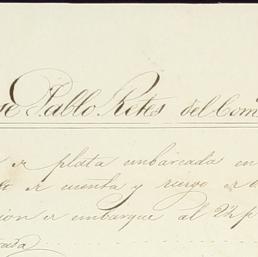 Pablo Retes del Com
plata embarcada en
de cuenta y riesgo de
embarque al 2½ p